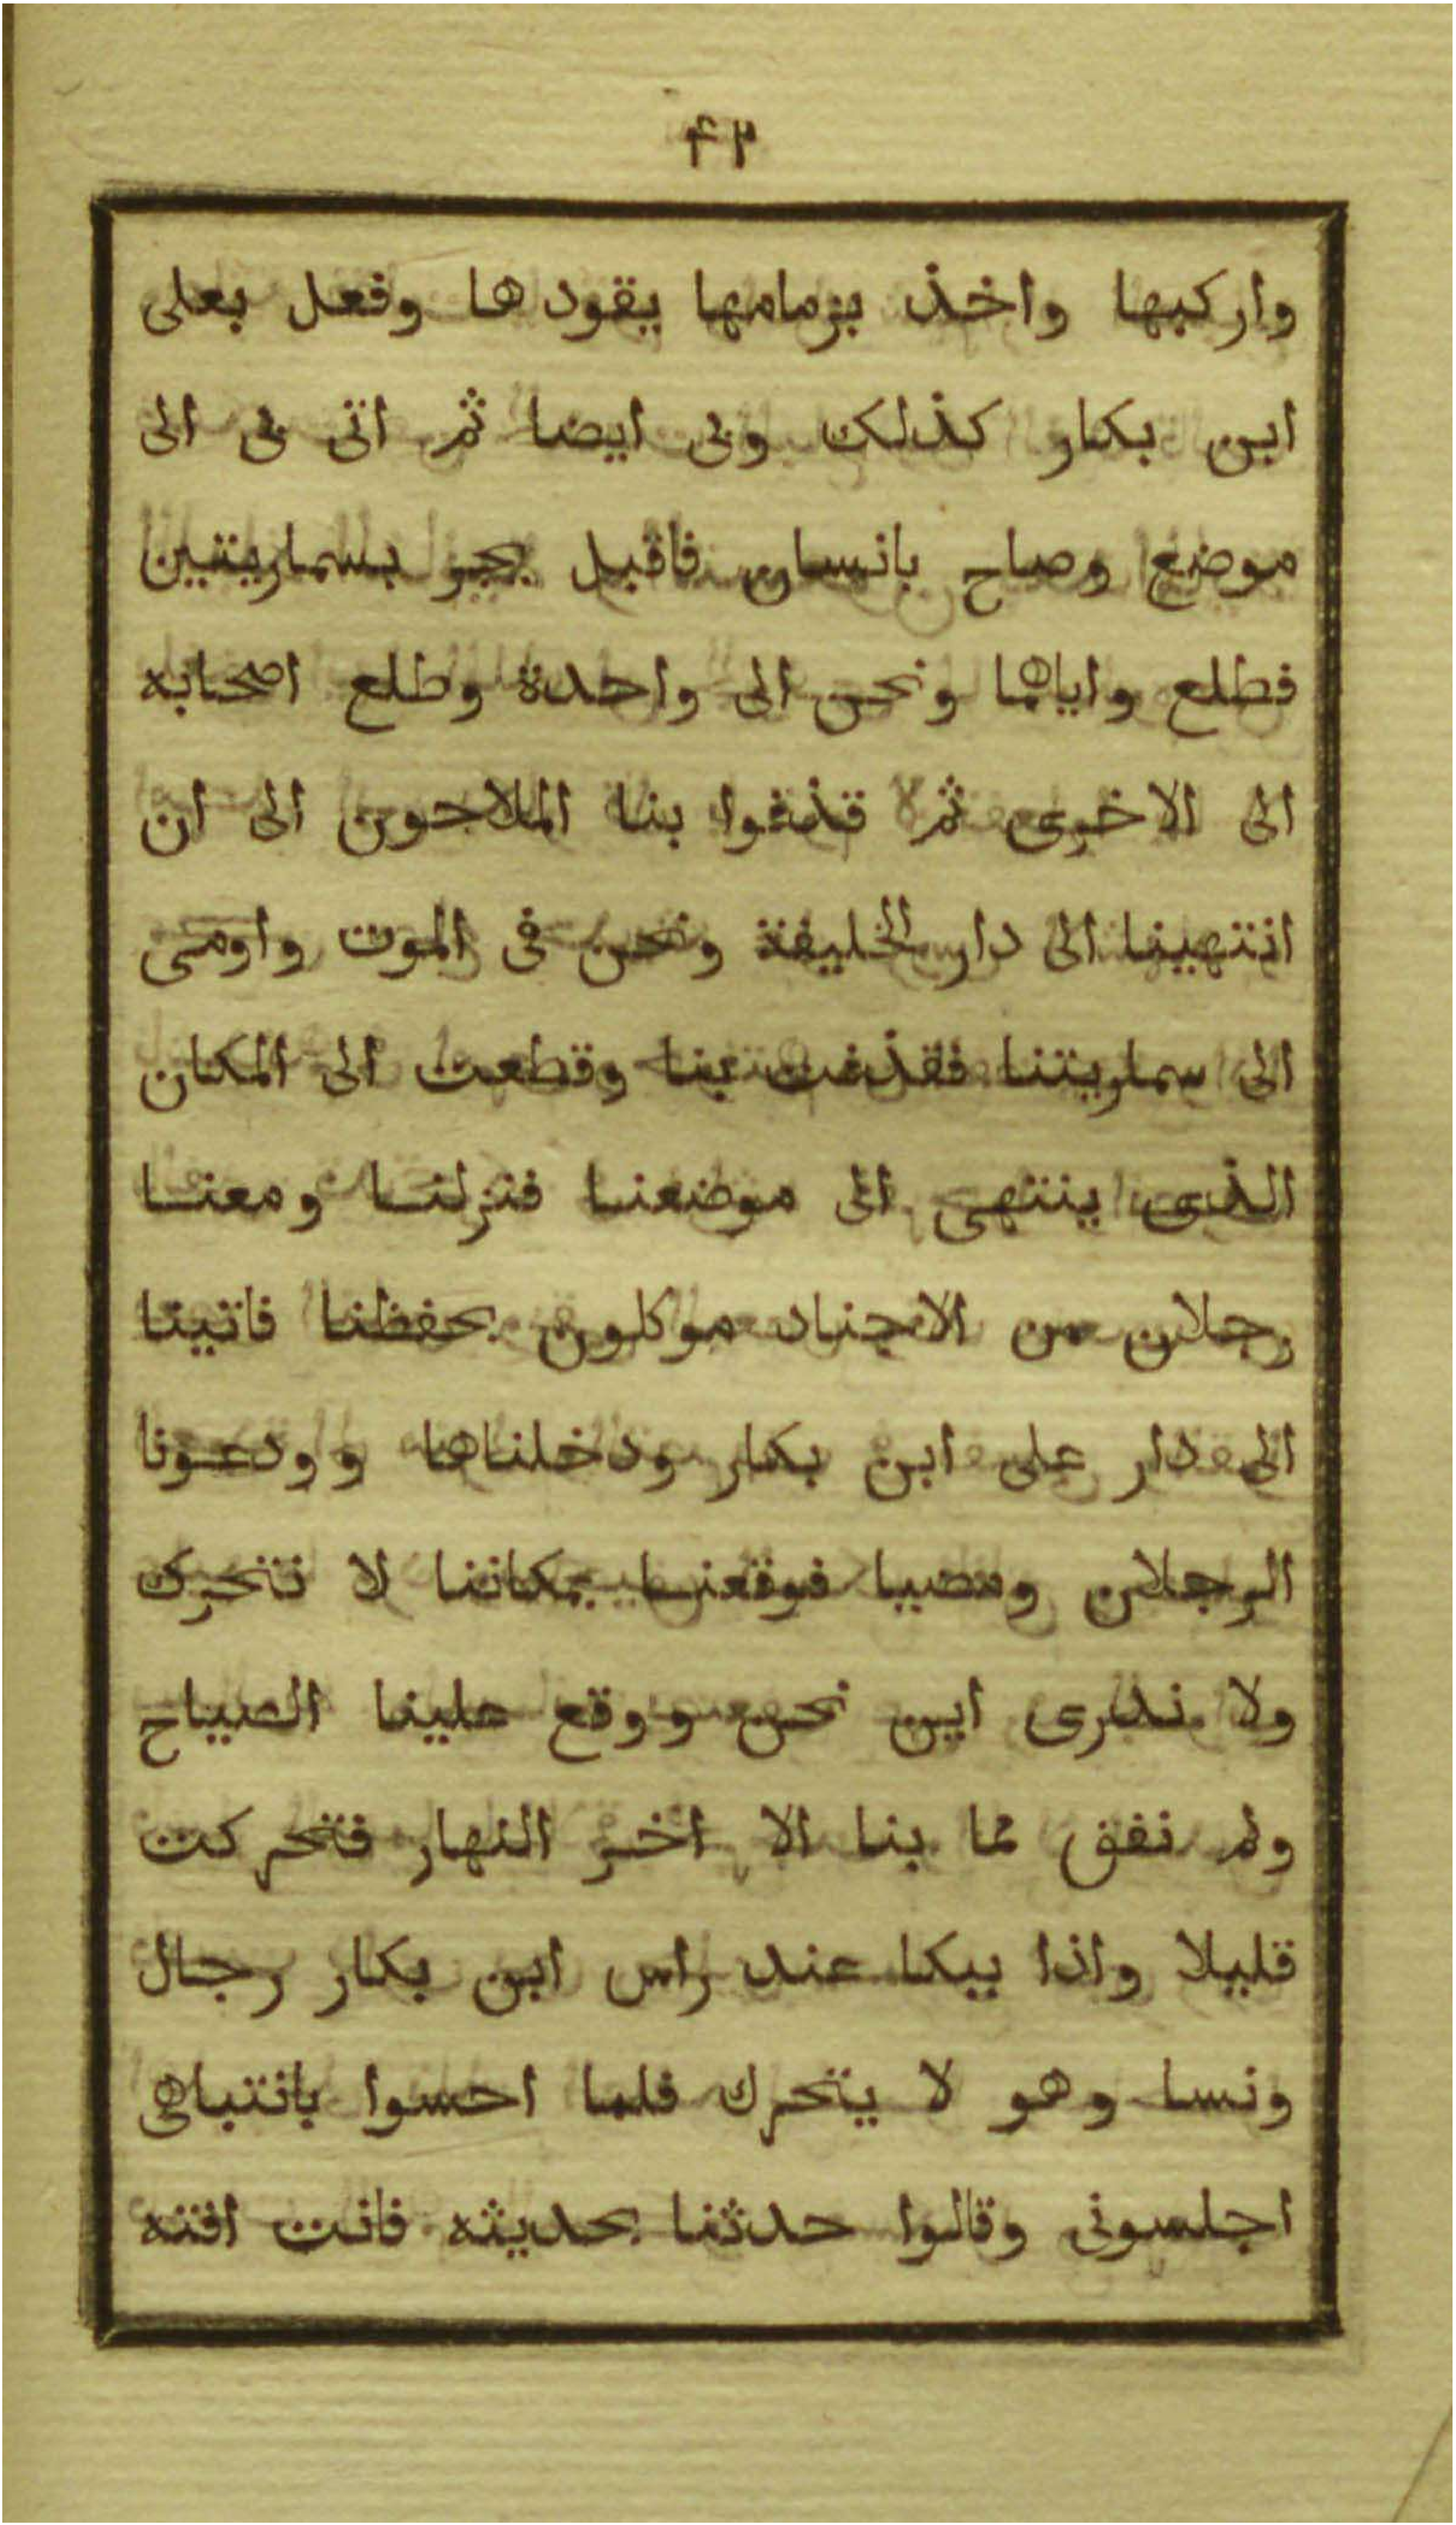 ٤٢
واركبها واخذ بزمامها يقودها وفعل بعلى
ابن بكار كذلك وبى ايضا ثم اتى بى الى
موضع وصاح بانسان فاقبل يجر بسماريتين
فطلع واياهما ونحن الى واحدة وطلع اصحابه
الى الاخرى ثم قذفوا بنا الملاحون الى ان
انتهينا الى دار الخليفة ونحن فى الموت واومى
الى سماريتنا فقذفت بنا وقطعت الى المكان
الذى ينتهى الى موضعنا فنزلنا ومعنا
رجلان من الاجناد موكلون بحفظنا فاتينا
الى دار على ابن بكار ودخلناها وودعونا
الرجلان ومضيا فوقعنا بمكاننا لا نتحرك
ولا ندرى اين نحن ووقع علينا الصياح
ولم نفق مما بنا الا اخر النهار فتحركت
قليلا واذا ببكا عند راس ابن بكار رجال
ونسا وهو لا يتحرك فلما احسوا بانتباهى
اجلسونى وقالوا حدثنا بحديثه فانت افته